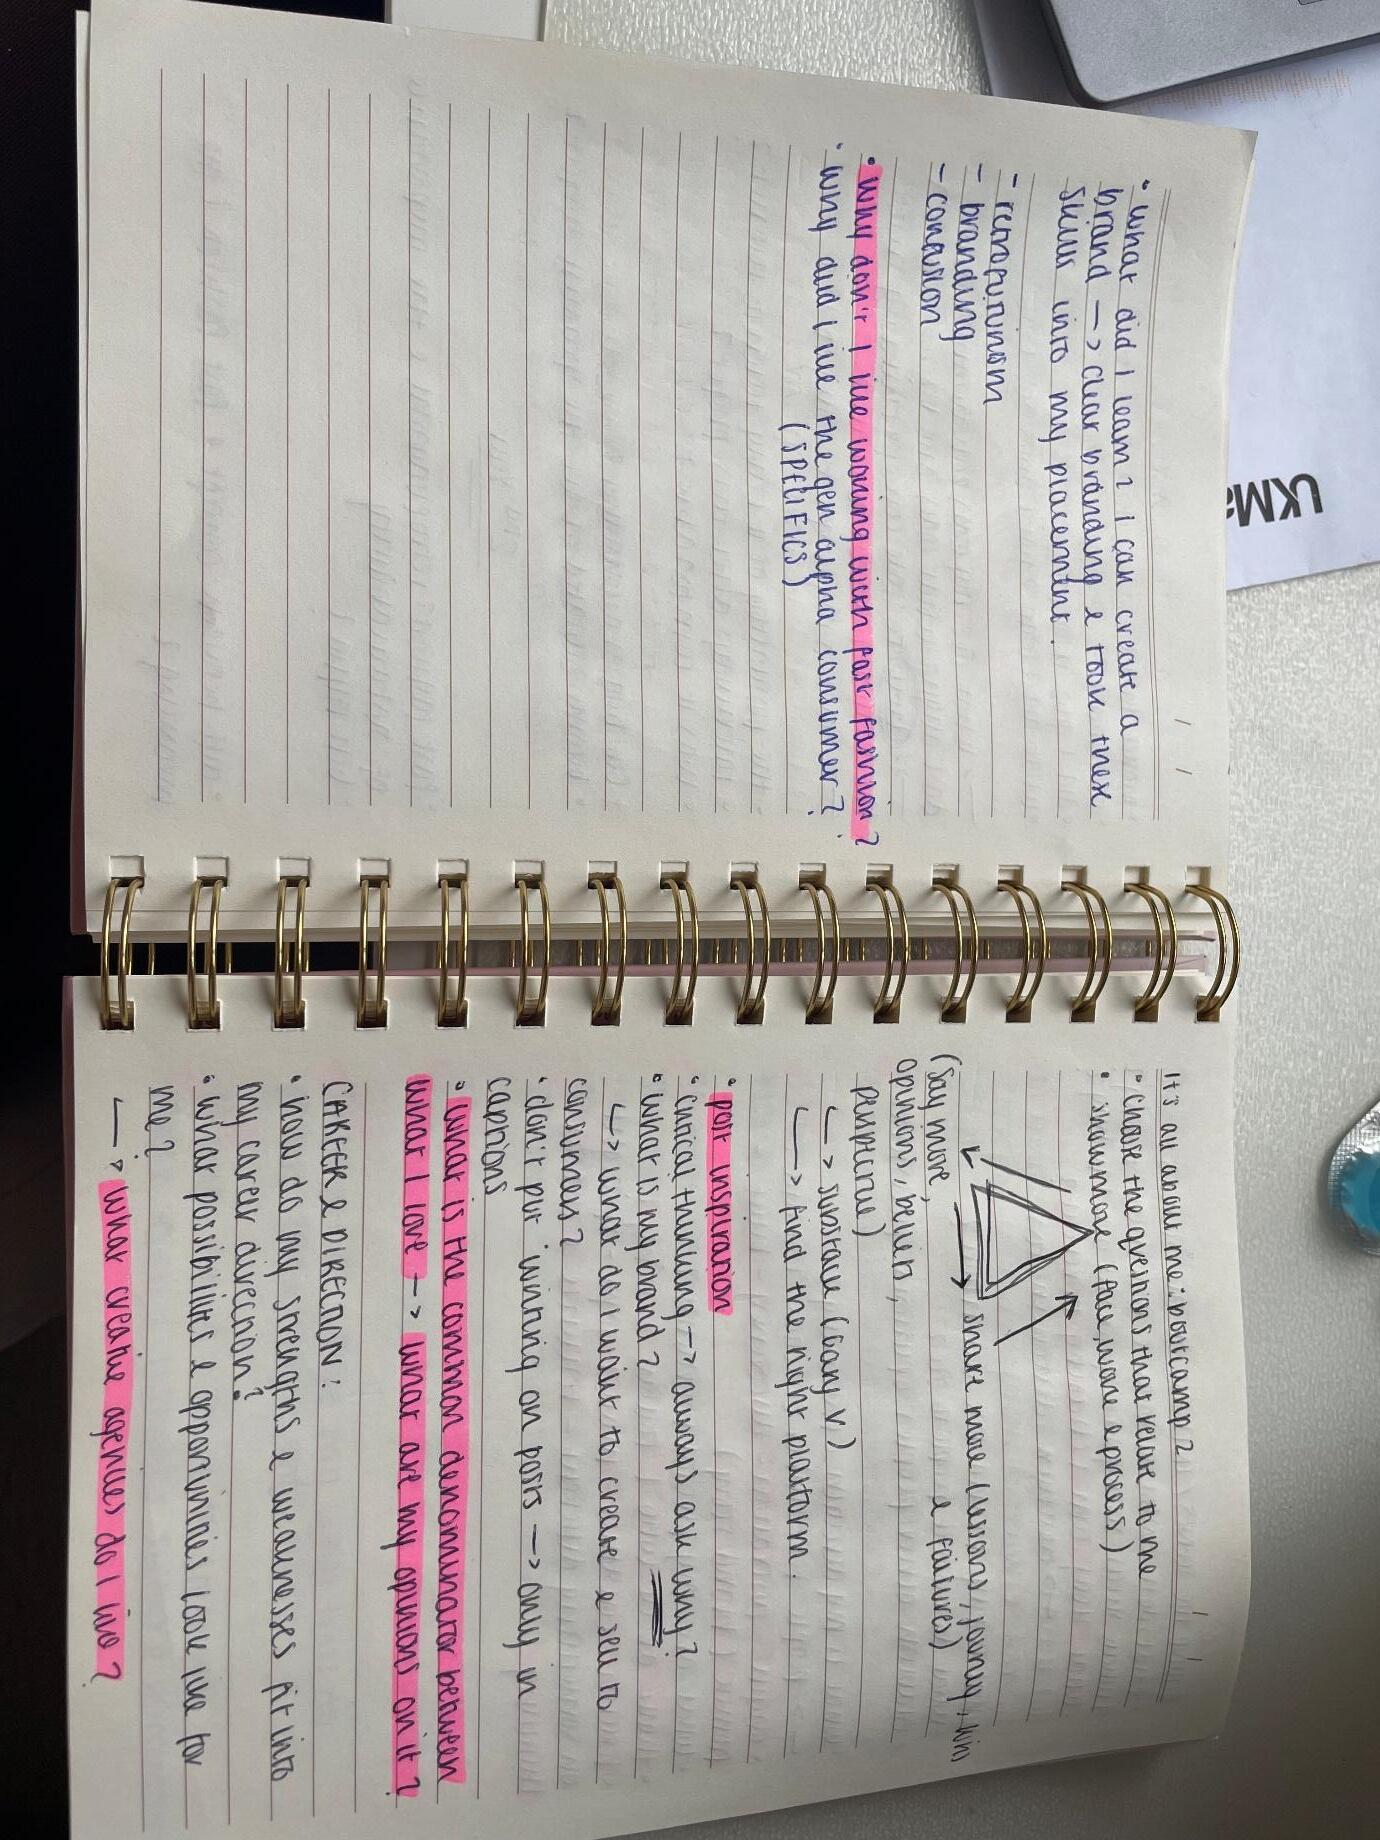 • what did I learn? I can create a
brand -> clear branding & took these
skills into my placement.
- retrofuturism
- branding
- conclusion
• why don't I like working with fast fashion?
• why did I like the gen alpha consumer?
(SPECIFICS)
It's all about me: bootcamp?
• choose the questions that relate to me
• show more (face, work & process)
share more (lessons, journey, wins
& failures)
(Say more,
opinions, beliefs,
perspective)
-> substance (Gary V)
-> find the right platform.
• post inspiration
• critical thinking -> always ask why?
• what is my brand?
-> what do I want to create & sell to
consumers?
• don't put writing on posts -> only in
captions
• what is the common denominator between
what I love -> what are my opinions on it?
CAREER & DIRECTION:
• how do my strengths & weaknesses fit into
my career direction?
• what possibilities & opportunities look like for
me?
-> what creative agencies do I like?
UKMa